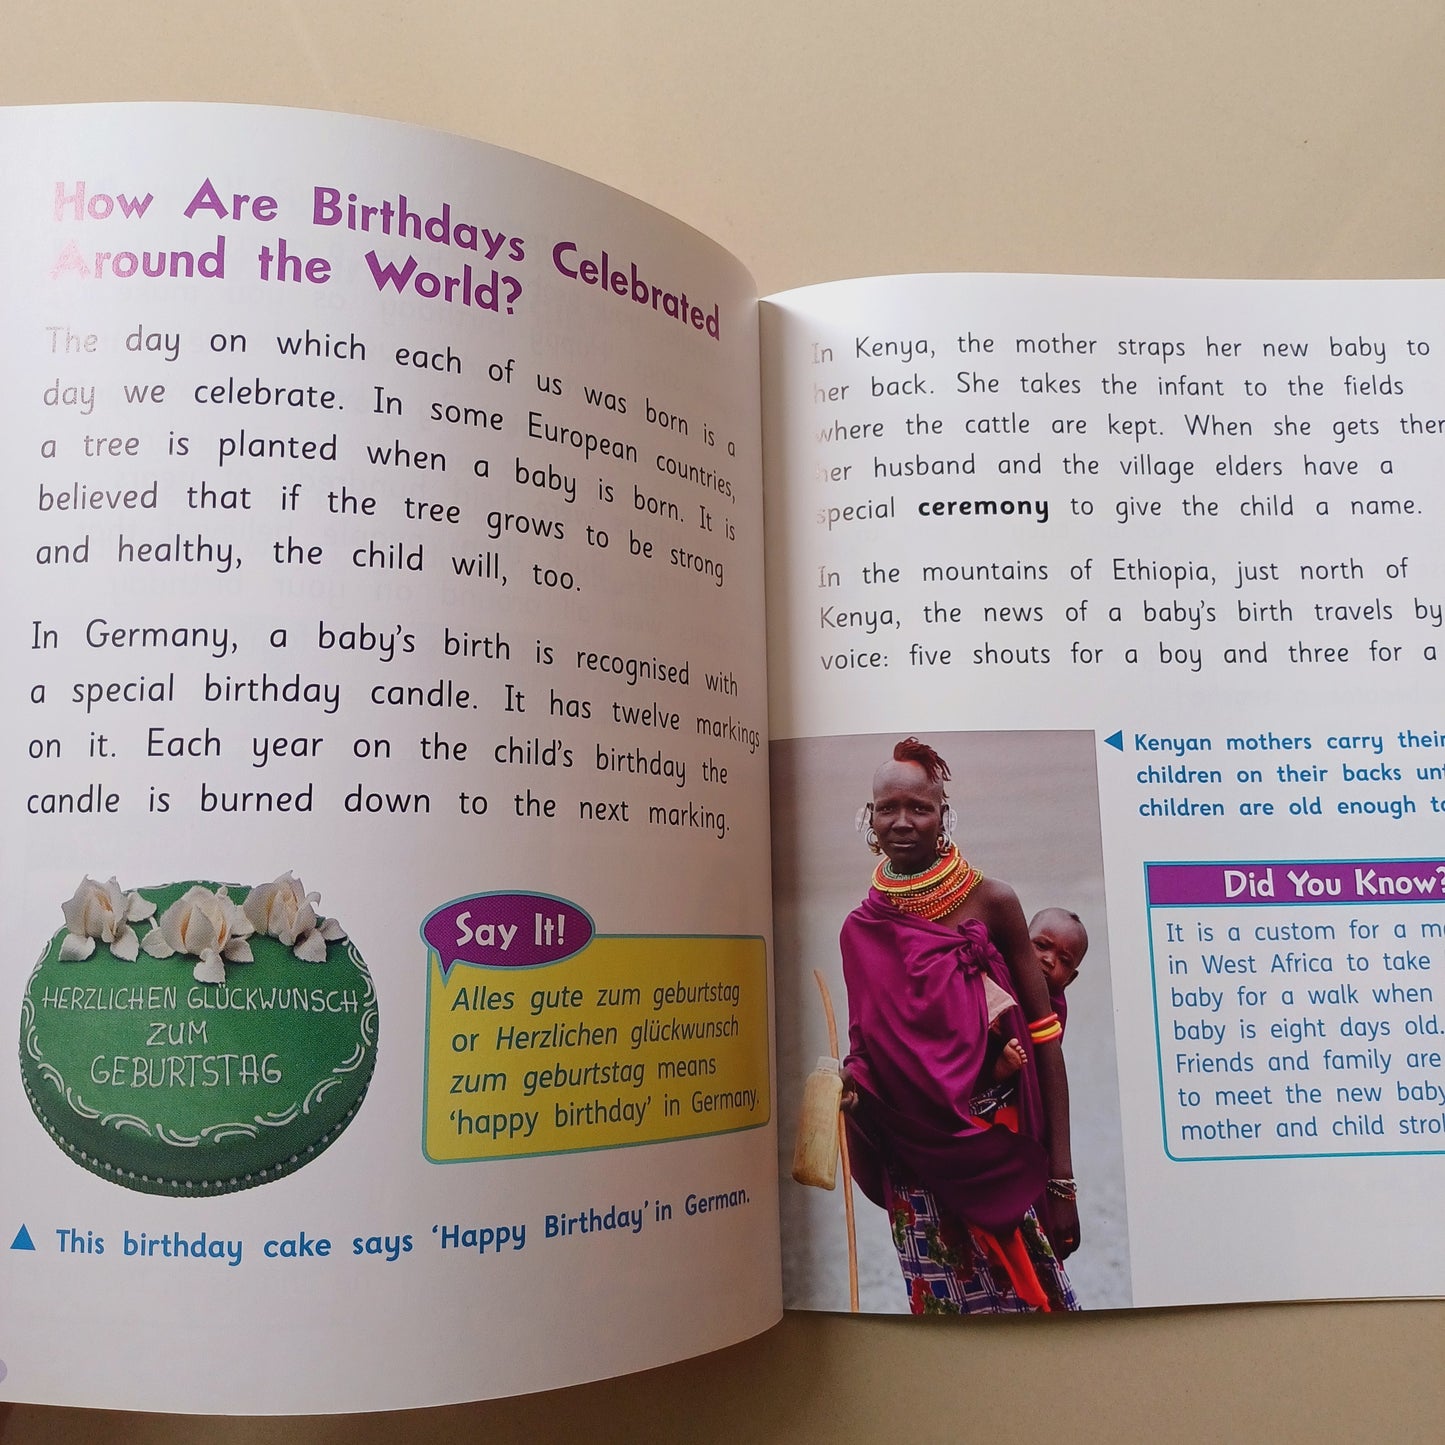 How Are Birthdays Celebrated
Around the World?
The day on which each of us was born is a
day we celebrate. In some European countries,
a tree is planted when a baby is born. It is
believed that if the tree grows to be strong
and healthy, the child will, too.
In Germany, a baby's birth is recognised with
a special birthday candle. It has twelve markings
on it. Each year on the child's birthday the
candle is burned down to the next marking.
HERZLICHEN GLÜCKWUNSCH
ZUM
GEBURTSTAG
Say It!
Alles gute zum geburtstag
or Herzlichen glückwunsch
zum geburtstag means
'happy birthday' in Germany.
This birthday cake says 'Happy Birthday' in German.
In Kenya, the mother straps her new baby to
her back. She takes the infant to the fields
where the cattle are kept. When she gets
her husband and the village elders have a
special ceremony to give the child a name.
In the mountains of Ethiopia, just north of
Kenya, the news of a baby's birth travels by
voice: five shouts for a boy and three for a
Kenyan mothers carry their
children on their backs
children are old enough
Did You Know?
It is a custom for a
in West Africa to take
baby for a walk when
baby is eight days old.
Friends and family are
to meet the new baby
mother and child